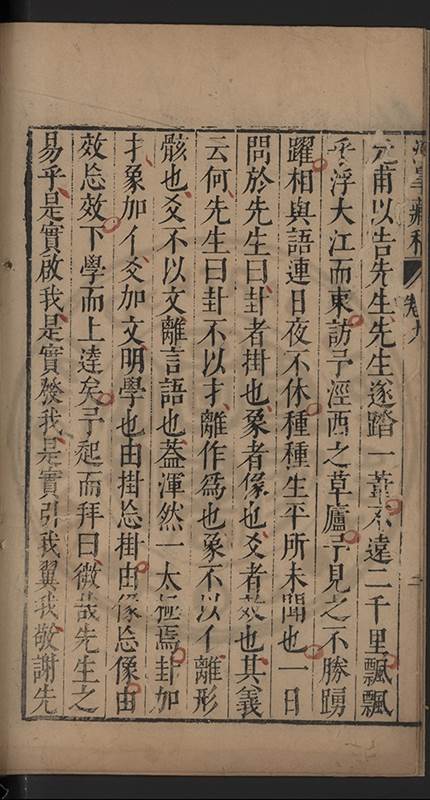 藏稿
卷九
元甫以告先生先生遂踏一葦不遠二千里飄飄
乎浮大江而東訪予涇西之草廬予見之不勝踴
躍相與語連日夜不休種種生平所未聞也一日
問於先生曰卦者掛也象者像也爻者效也其義
云何先生曰卦不以扌離作為也象不以亻離形
骸也爻不以文離言語也蓋渾然一太極焉卦加
扌象加亻爻加文明學也由掛忘掛由像忘像由
效忘效下學而上達矣予起而拜曰微哉先生之
易乎是實啟我是實發我是實引我翼我敬謝先